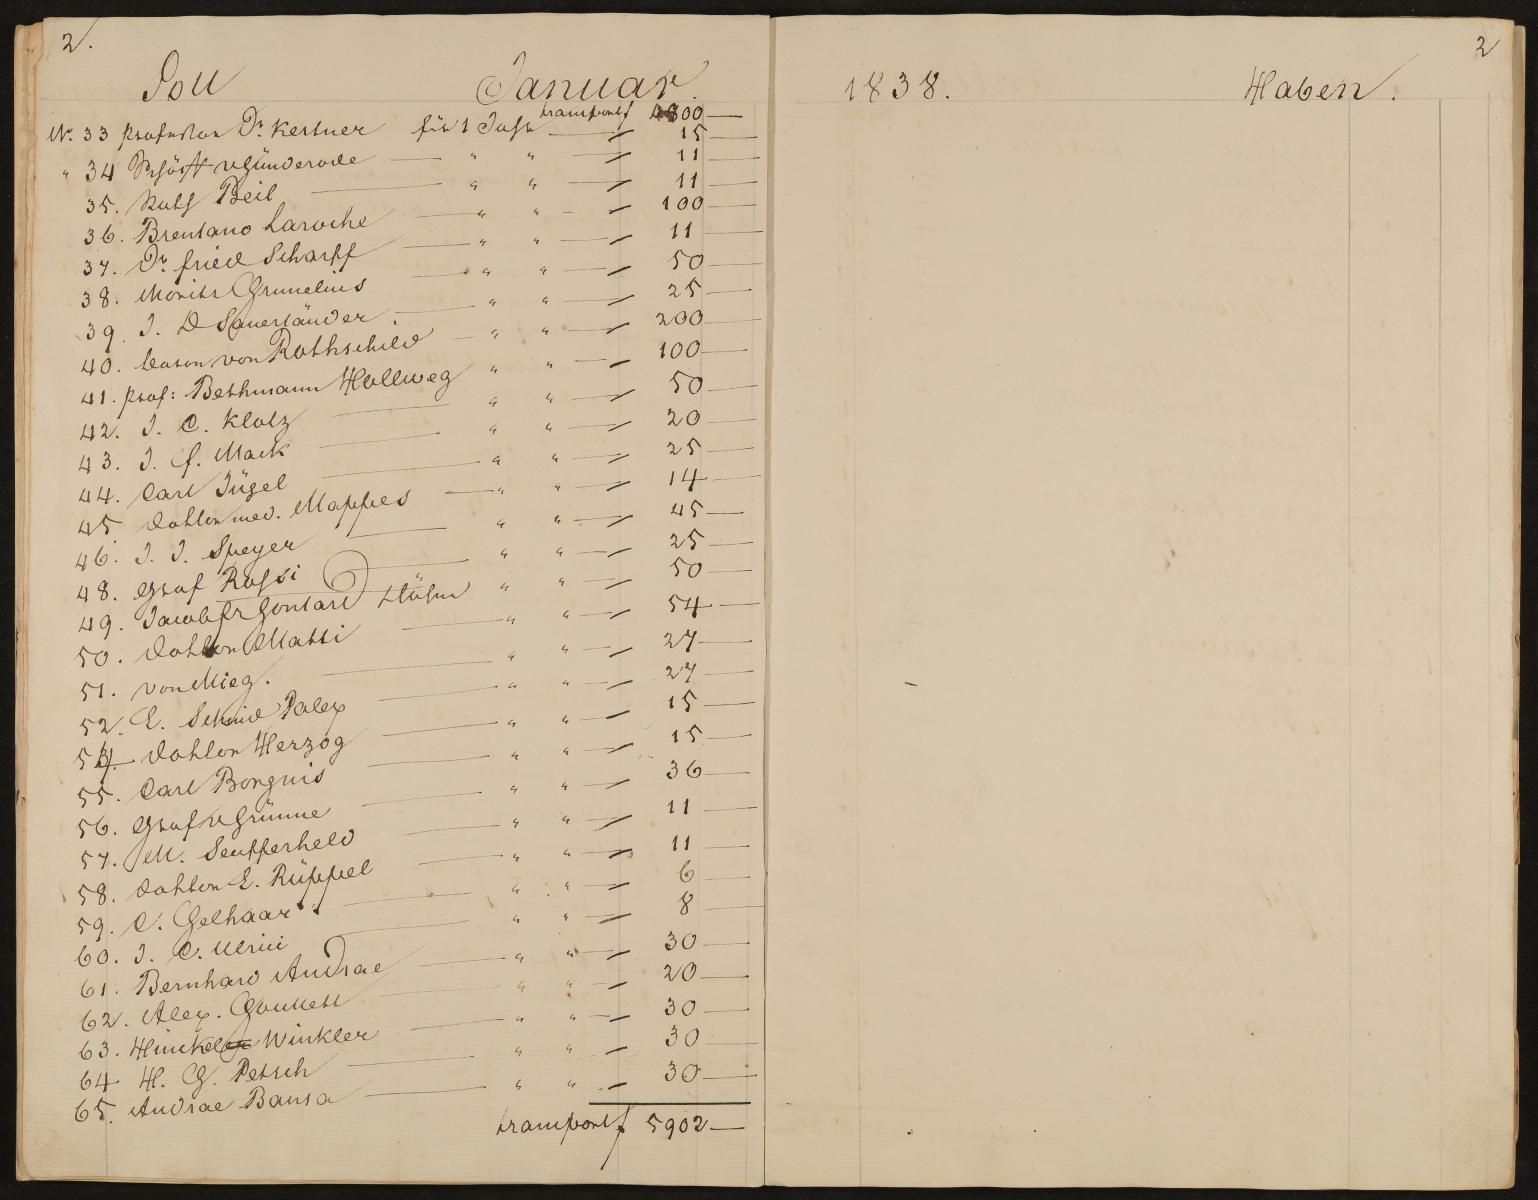 2.
Soll Januar
transport f 4800 —
No. 33 Professor Dr. Kestner für 1 Jahr — 15 —
" 34 Schöff v Günderode — " " — 11 —
35. Rath Beil — " " — 11 —
36. Brentano Laroche — " " — 100 —
37. Dr. fried Scharff — " " — 11 —
38. Moritz Grunelius — " " — 50 —
39. J. D Sauerländer. — " " — 25 —
40. Baron von Rothschild — " " — 200 —
41. Prof: Bethmann Hollweg " " — 100 —
42. J. C. Klotz — " " — 50 —
43. J. f. Mack — " " — 20 —
44. Carl Jügel — " " — 25 —
45 Doktor med. Mappes — " " — 14 —
46. J. J. Speyer — " " — 45 —
48. Graf Rossi — " " — 25 —
49. Jacob fr Gontard Söhne " " — 50 —
50. Doktor Matti — " " — 54 —
51. von Mieg. — " " — 27 —
52. E. Schmid Polex — " " — 27 —
54. Doktor Herzog — " " — 15 —
55. Carl Borgnis — " " — 15 —
56. Graf v Grünne — " " — 36 —
57. M. Seufferheld — " " — 11 —
58. Doktor E. Rüppel — " " — 11 —
59. C. Gelhaar. — " " — 6 —
60. J. C. Ulrici — " " — 8 —
61. Bernhard Andrae — " " — 30 —
62. Alex. Gontard — " " — 20 —
63. Winkler — " " — 30 —
64 H. G. Petsch — " " — 30 —
65. Andrae Bansa — " " — 30 —
transport f 5902 —
2
1838. Haben.